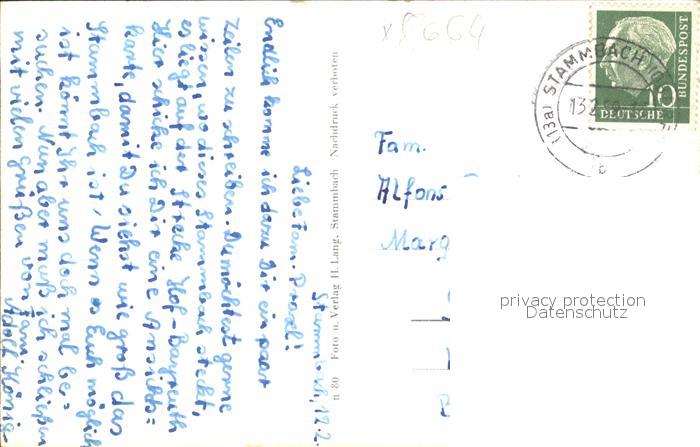 Stammbach, 12.2.
Liebe Fam.
Endlich komme ich dazu Dir ein paar
Zeilen zu schreiben. Du möchtest gerne
wissen, wo dieses Stammbach steckt,
es liegt auf der Strecke Hof-Bayreuth
Hier schicke ich Dir eine Ansichts=
karte, damit Du siehst wie groß das
Stammbach ist. Wenn es Euch möglich
ist könnt Ihr uns doch mal be=
suchen. Nun aber muß ich schließen
mit vielen Grüßen von Fam.
Adolf König
n 80 Foto u. Verlag H. Lang, Stammbach Nachdruck verboten
x8664
(13a) STAMMBACH
13.2.
b
10
DEUTSCHE
BUNDESPOST
Fam.
Alfons
Marg
privacy protection
Datenschutz